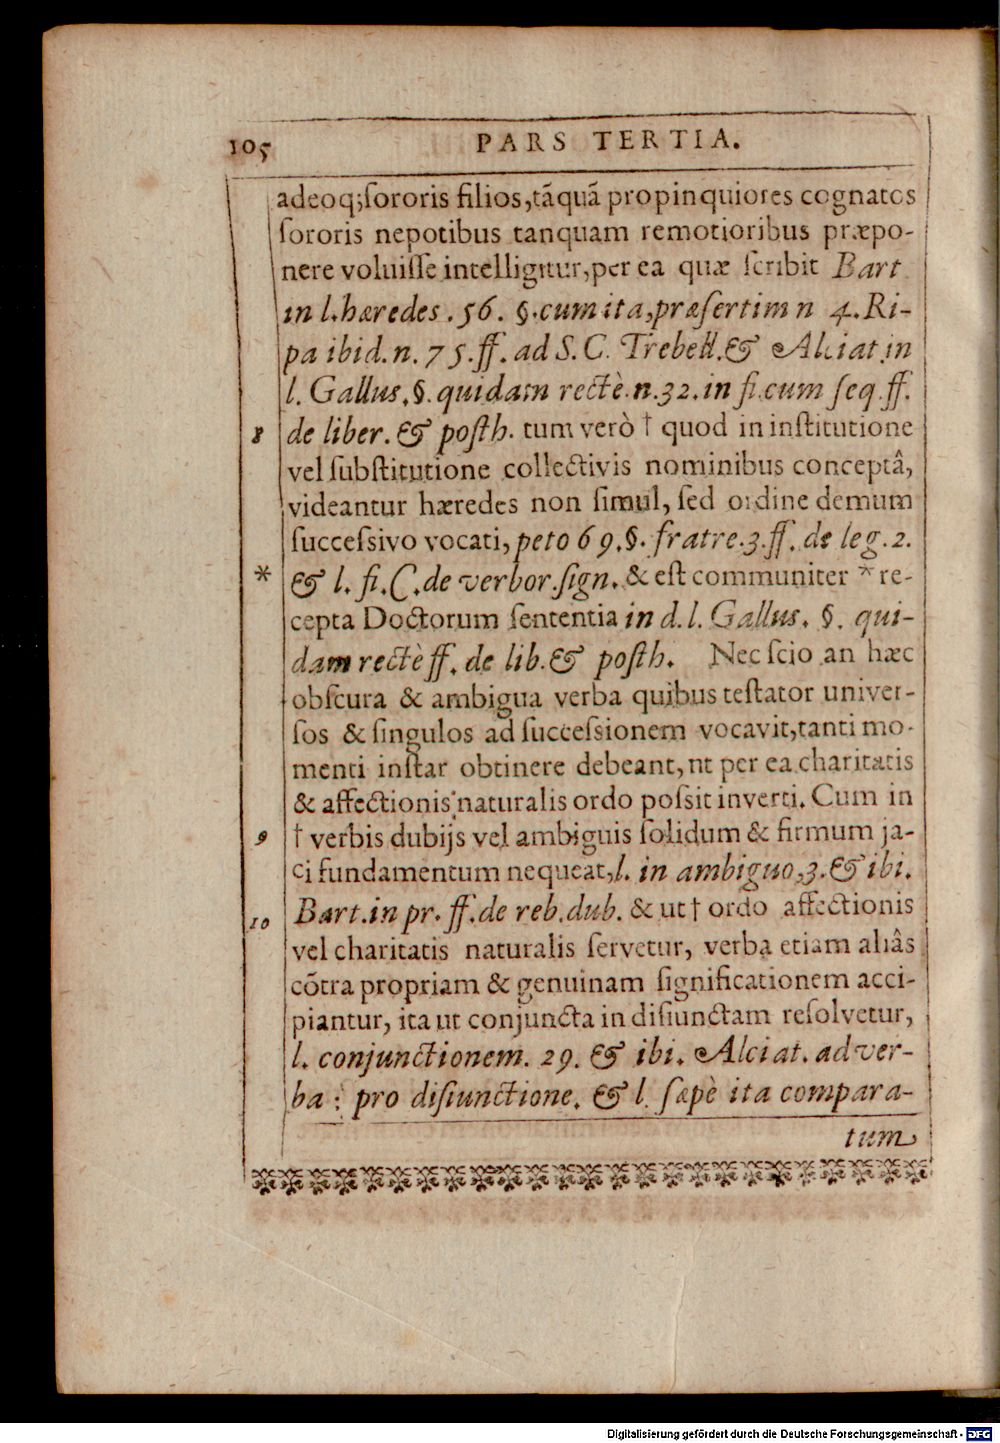 105 PARS TERTIA.
adeoq;ſororis filios,tãquã propinquiores cognatos
ſororis nepotibus tanquam remotioribus præpo-
nere voluiſſe intelligitur,per ea quæ ſcribit Bart
in l.hæredes .56. §.cum ita,præſertim n 4.Ri-
pa ibid.n.75.ff. ad S.C. Trebell.& Alciat.in
l. Gallus.§.quidam rectè.n.32.in fi.cum ſeq.ff.
8 de liber.& poſth. tum verò † quod in inſtitutione
vel ſubſtitutione collectivis nominibus conceptâ,
videantur hæredes non ſimul, ſed ordine demum
ſucceſsivo vocati, peto 69.§. fratre.3.ff. de leg.2.
* & l. fi.C.de verbor.ſign. & eſt communiter * re-
cepta Doctorum ſententia in d.l. Gallus. §. qui-
dam rectè ff. de lib.& poſth. Nec ſcio an hæc
obſcura & ambigua verba quibus teſtator univer-
ſos & ſingulos ad ſucceſsionem vocavit,tanti mo-
menti inſtar obtinere debeant,nt per ea charitatis
& affectionis naturalis ordo poſsit inverti. Cum in
9 † verbis dubijs vel ambiguis ſolidum & firmum ja-
ci fundamentum nequeat,l. in ambiguo,3.& ibi.
10 Bart.in pr. ff.de reb.dub. & ut † ordo affectionis
vel charitatis naturalis ſervetur, verba etiam aliâs
cõtra propriam & genuinam ſignificationem acci-
piantur, ita ut conjuncta in diſiunctam reſolvetur,
l. conjunctionem. 29. & ibi. Alciat. ad ver-
ba : pro diſiunctione. & l. ſæpè ita compara-
tum
Digitalisierung gefördert durch die Deutsche Forschungsgemeinschaft - DFG